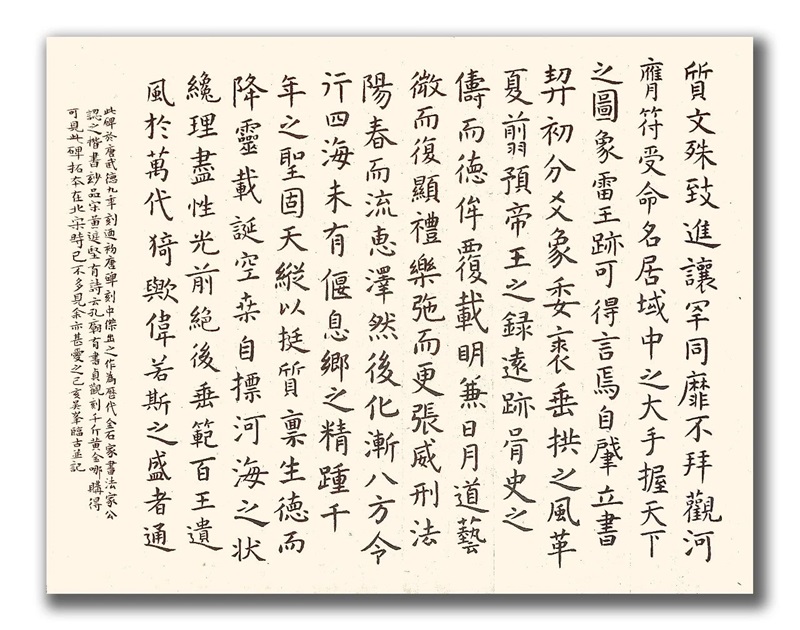 質文殊致進讓罕同靡不拜觀河
膺符受命名居域中之大手握天下
之圖象雷王跡可得言焉自肇立書
契初分爻象委裘垂拱之風革
夏翦預帝王之録遠跡胥史之
儔而德侔覆載明兼日月道藝
微而復顯禮樂弛而更張威刑法
陽春而流恵澤然後化漸八方令
行四海未有偃息鄉之精踵千
年之聖固天縱以挺質禀生德而
降靈載誕空桒自摽河海之状
纔理盡性光前絶後垂範百王遺
風於萬代猗歟偉若斯之盛者通
此碑於唐武德九年刻迺初唐碑刻中傑出之作為曆代金石家書法家公
認之楷書妙品宋黄延堅有詩云孔廟有書貞觀刻千斤黄金哪購得
可見此碑拓本在北宋時已不多見余亦甚愛之己亥吴峯臨古並記